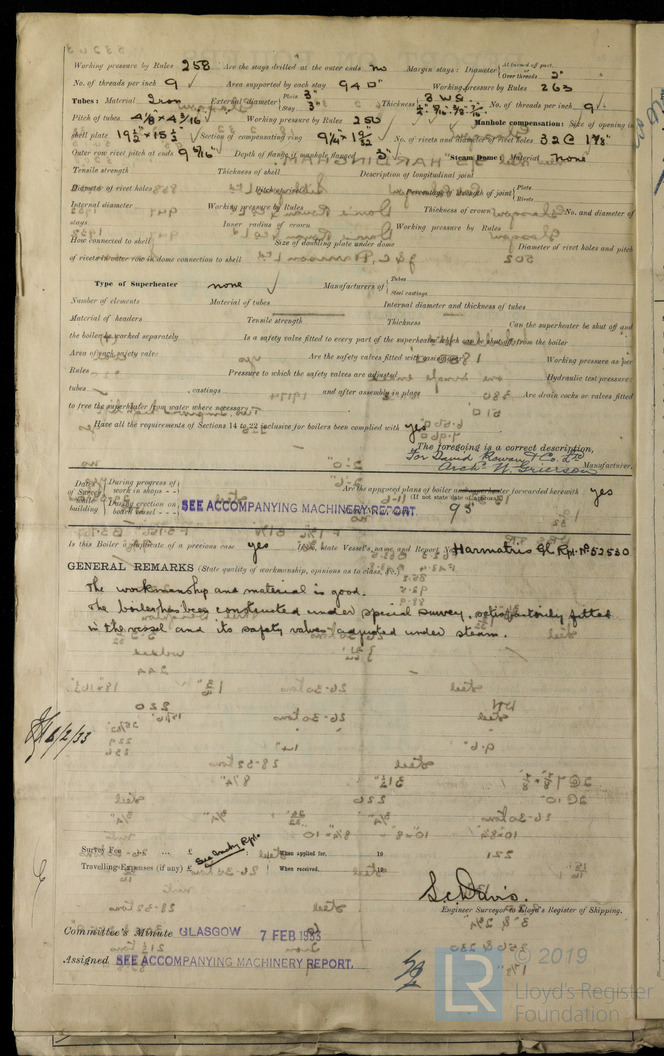 Working pressure by Rules 258 Are the stays drilled at the outer ends no Margin stays: Diameter { At turned off part, or Over threads 2"
No. of threads per inch 9 Area supported by each stay 94 □" Working pressure by Rules 263
Tubes: Material Iron External diameter { Plain 3" Stay 3" Thickness { 8 W.G. No. of threads per inch 9
Pitch of tubes 4 1/8 × 4 3/16 Working pressure by Rules 250 Manhole compensation: Size of opening in
shell plate 19 1/2" × 15 1/2" Section of compensating ring No. of rivets and diameter of rivet holes 32 @ 1 3/8"
Outer row rivet pitch at ends 9 5/16" Depth of flange if manhole flanged 3" Steam Dome: Material none
Tensile strength Thickness of shell Description of longitudinal joint
Diameter of rivet holes Pitch of rivets Percentage of strength of joint { Plate Rivets
Internal diameter Working pressure by Rules Thickness of crown No. and diameter of
stays Inner radius of crown Working pressure by Rules
How connected to shell Size of doubling plate under dome Diameter of rivet holes and pitch
of rivets in outer row in dome connection to shell
Type of Superheater none Manufacturers of { Tubes Steel castings
Number of elements Material of tubes Internal diameter and thickness of tubes
Material of headers Tensile strength Thickness Can the superheater be shut off and
the boiler be worked separately Is a safety valve fitted to every part of the superheater which can be shut off from the boiler
Area of each safety valve Are the safety valves fitted with easing gear Working pressure as per
Rules Pressure to which the safety valves are adjusted Hydraulic test pressure:
tubes , castings and after assembly in place Are drain cocks or valves fitted
to free the superheater from water where necessary
Have all the requirements of Sections 14 to 22 inclusive for boilers been complied with yes
The foregoing is a correct description,
For David Rowan & Co. Ltd
Arch. W. Grierson Manufacturer.
Dates of Survey while building { During progress of work in shops - - During erection on board vessel - - - SEE ACCOMPANYING MACHINERY REPORT. Are the approved plans of boiler and superheater forwarded herewith yes
(If not state date of approval.)
Is this Boiler a duplicate of a previous case yes If so, state Vessel's name and Report No. Harmatris Gl. Rpt. No 52530
GENERAL REMARKS (State quality of workmanship, opinions as to class, &c.)
The workmanship and material is good.
The boiler has been constructed under special survey, satisfactorily fitted
in the vessel and its safety valves adjusted under steam.
6/2/33
Survey Fee ... ... £ See Mchy Rpt. : : When applied for, 19
Travelling Expenses (if any) £ : : When received, 19
S. C. Davis.
Engineer Surveyor to Lloyd's Register of Shipping.
Committee's Minute GLASGOW 7 FEB 1933
Assigned SEE ACCOMPANYING MACHINERY REPORT.
LR © 2019
Lloyd's Register
Foundation